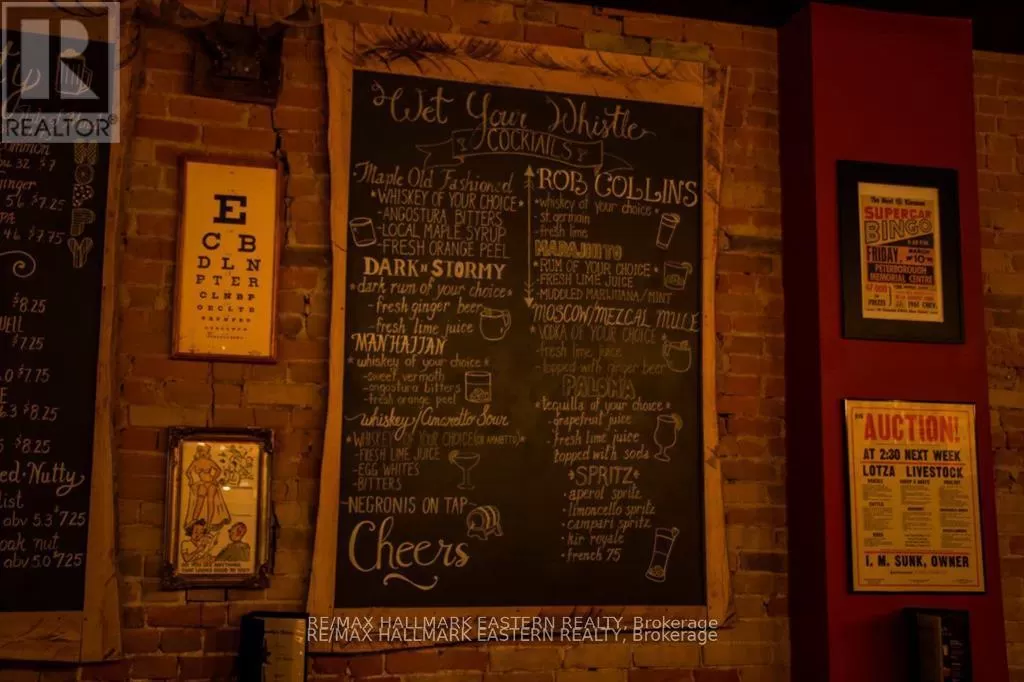 REALTOR®
32 $7
5.6 $7.25
4.6 $7.75
$8.25
$7.25
$7.75
6.3 $8.25
$8.25
Nutty
abv 5.3 $725
oak nut
abv 5.0 $725
E
C B
D L N
P T E R
Wet Your Whistle
COCKTAILS
Maple Old Fashioned
*WHISKEY OF YOUR CHOICE*
-ANGOSTURA BITTERS
-LOCAL MAPLE SYRUP
-FRESH ORANGE PEEL
DARK N STORMY
*dark rum of your choice*
-fresh ginger beer
-fresh lime juice
MANHATTAN
*whiskey of your choice*
-sweet vermoth
-angostura bitters
-fresh orange peel
whiskey/Amaretto Sour
*WHISKEY OF YOUR CHOICE (OR AMARETTO)*
-FRESH LIME JUICE
-EGG WHITES
-BITTERS
-NEGRONIS ON TAP
Cheers
ROB COLLINS
*whiskey of your choice*
-st. germain
-fresh lime
MARAJHITO
*RUM OF YOUR CHOICE*
-FRESH LIME JUICE
-MUDDLED MARIJUANA/MINT
MOSCOW/MEZCAL MULE
*VODKA OF YOUR CHOICE*
-fresh lime juice
-topped with ginger beer
PALOMA
*tequilla of your choice*
-grapefruit juice
-fresh lime juice
topped with soda
*SPRITZ*
•aperol spritz
•limoncello spritz
•campari spritz
•kir royale
•french 75
SUPERCAR
BINGO
FRIDAY,
PETERBOROUGH
MEMORIAL CENTRE
AUCTION!
AT 2:30 NEXT WEEK
LOTZA LIVESTOCK
I. M. SUNK, OWNER
RE/MAX HALLMARK EASTERN REALTY, Brokerage
RE/MAX HALLMARK EASTERN REALTY, Brokerage